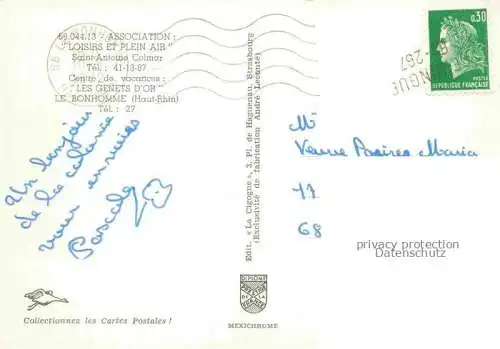 68.044.13 - ASSOCIATION:
"LOISIRS ET PLEIN AIR"
Saint-Antoine Colmar
Tél.: 41-13-87
Centre de vacances:
"LES GENETS D'OR"
LE BONHOMME (Haut-Rhin)
Tél.: 27
Un bonjour
de la colonie
vous
Pascale
Edit. « La Cigogne », 3, Pl. de Haguenau, Strasbourg
(Exclusivité de fabrication André Leconte)
0,30
POSTES
REPUBLIQUE FRANÇAISE
267
Mr
Maria
68
privacy protection
Datenschutz
Collectionnez les Cartes Postales !
MEXICHROME